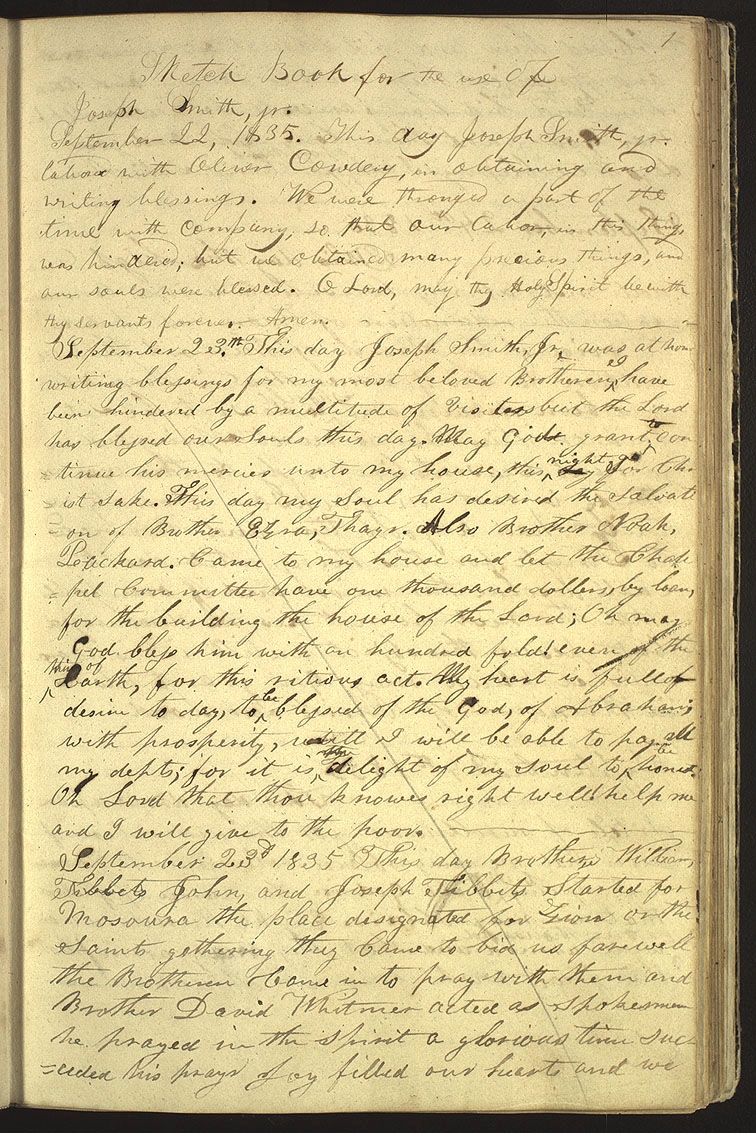 1
Sketch Book for the use of
Joseph Smith, jr.
September 22, 1835. This day Joseph Smith, jr.
labored with Oliver Cowdery, in obtaining and
writing blessings. We were thronged a part of the
time with company, so that our labor, in this thing,
was hindered; but we obtained many precious things, and
our souls were blessed. O Lord, may thy Holy Spirit be with
thy servants forever. Amen.
September 23.th This day Joseph Smith, Jr. was at home
writing blessings for my most beloved Brotheren, I have
been hindered by a multitude of visiters but the Lord
has blessed our Souls this day. May God grant to con
=tinue his mercies unto my house, this night For Chr
=ist sake. This day my Soul has desired the salvati
=on of Brother Ezra, Thayr. Also Brother Noah,
Packard. Came to my house and let the Chap
=pel Committee have one thousand dollers, by loan,
for the building the house of the Lord; Oh may
God bless him with an hundred fold! even of the
things of
Earth, for this ritious act. My heart is full of
desire to day, to be blessed of the God, of Abraham;
with prosperity, untill I will be able to pay all
my depts; for it is the delight of my soul to be honest.
Oh Lord that thou knowes right well! help me
and I will give to the poor.
September 23d 1835 This day Brothers William,
Tibbets John, and Joseph Tibbets Started for
Mosoura the place designated for Zion or the
Saints gathering they Came to bid us farewell
the Brotheren Came in to pray with them and
Brother David Whitmer acted as spokesman
he prayed in the spirit a glorious time suc
=ceded his prayr Joy filled our hearts and we